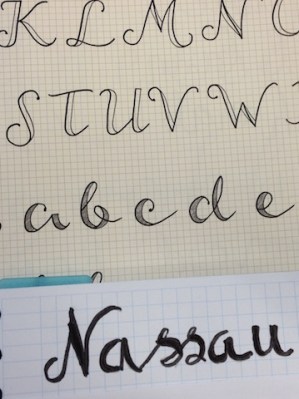 K L M N O
S T U V W
a b c d e
Nassau